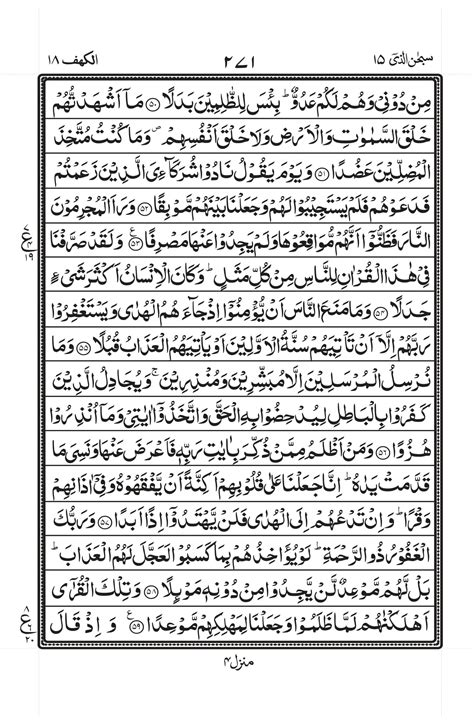 سبحٰن الذی ١٥
٢٧١
الكهف ١٨
مِنْ دُوْنِيْ وَهُمْ لَكُمْ عَدُوٌّ ؕ بِئْسَ لِلظّٰلِمِيْنَ بَدَلًا ﴿٥٠﴾ مَاۤ اَشْهَدْتُّهُمْ
خَلْقَ السَّمٰوٰتِ وَالْاَرْضِ وَلَا خَلْقَ اَنْفُسِهِمْ ۪ وَمَا كُنْتُ مُتَّخِذَ
الْمُضِلِّيْنَ عَضُدًا ﴿٥١﴾ وَيَوْمَ يَقُوْلُ نَادُوْا شُرَكَآءِيَ الَّذِيْنَ زَعَمْتُمْ
فَدَعَوْهُمْ فَلَمْ يَسْتَجِيْبُوْا لَهُمْ وَجَعَلْنَا بَيْنَهُمْ مَّوْبِقًا ﴿٥٢﴾ وَرَاَ الْمُجْرِمُوْنَ
النَّارَ فَظَنُّوْۤا اَنَّهُمْ مُّوَاقِعُوْهَا وَلَمْ يَجِدُوْا عَنْهَا مَصْرِفًا ﴿٥٣﴾ ع وَلَقَدْ صَرَّفْنَا
فِيْ هٰذَا الْقُرْاٰنِ لِلنَّاسِ مِنْ كُلِّ مَثَلٍ ؕ وَكَانَ الْاِنْسَانُ اَكْثَرَ شَيْءٍ
جَدَلًا ﴿٥٤﴾ وَمَا مَنَعَ النَّاسَ اَنْ يُّؤْمِنُوْۤا اِذْ جَآءَهُمُ الْهُدٰى وَيَسْتَغْفِرُوْا
رَبَّهُمْ اِلَّاۤ اَنْ تَاْتِيَهُمْ سُنَّةُ الْاَوَّلِيْنَ اَوْ يَاْتِيَهُمُ الْعَذَابُ قُبُلًا ﴿٥٥﴾ وَمَا
نُرْسِلُ الْمُرْسَلِيْنَ اِلَّا مُبَشِّرِيْنَ وَمُنْذِرِيْنَ ۚ وَيُجَادِلُ الَّذِيْنَ
كَفَرُوْا بِالْبَاطِلِ لِيُدْحِضُوْا بِهِ الْحَقَّ وَاتَّخَذُوْۤا اٰيٰتِيْ وَمَاۤ اُنْذِرُوْا
هُزُوًا ﴿٥٦﴾ وَمَنْ اَظْلَمُ مِمَّنْ ذُكِّرَ بِاٰيٰتِ رَبِّهٖ فَاَعْرَضَ عَنْهَا وَنَسِيَ مَا
قَدَّمَتْ يَدٰهُ ؕ اِنَّا جَعَلْنَا عَلٰى قُلُوْبِهِمْ اَكِنَّةً اَنْ يَّفْقَهُوْهُ وَفِيْۤ اٰذَانِهِمْ
وَقْرًا ؕ وَاِنْ تَدْعُهُمْ اِلَى الْهُدٰى فَلَنْ يَّهْتَدُوْۤا اِذًا اَبَدًا ﴿٥٧﴾ وَرَبُّكَ
الْغَفُوْرُ ذُو الرَّحْمَةِ ؕ لَوْ يُؤَاخِذُهُمْ بِمَا كَسَبُوْا لَعَجَّلَ لَهُمُ الْعَذَابَ ؕ
بَلْ لَّهُمْ مَّوْعِدٌ لَّنْ يَّجِدُوْا مِنْ دُوْنِهٖ مَوْئِلًا ﴿٥٨﴾ وَتِلْكَ الْقُرٰۤى
اَهْلَكْنٰهُمْ لَمَّا ظَلَمُوْا وَجَعَلْنَا لِمَهْلِكِهِمْ مَّوْعِدًا ﴿٥٩﴾ ع وَاِذْ قَالَ
٧
ع
٤
١٩
٨
ع
٦
٢٠
منزل ٤